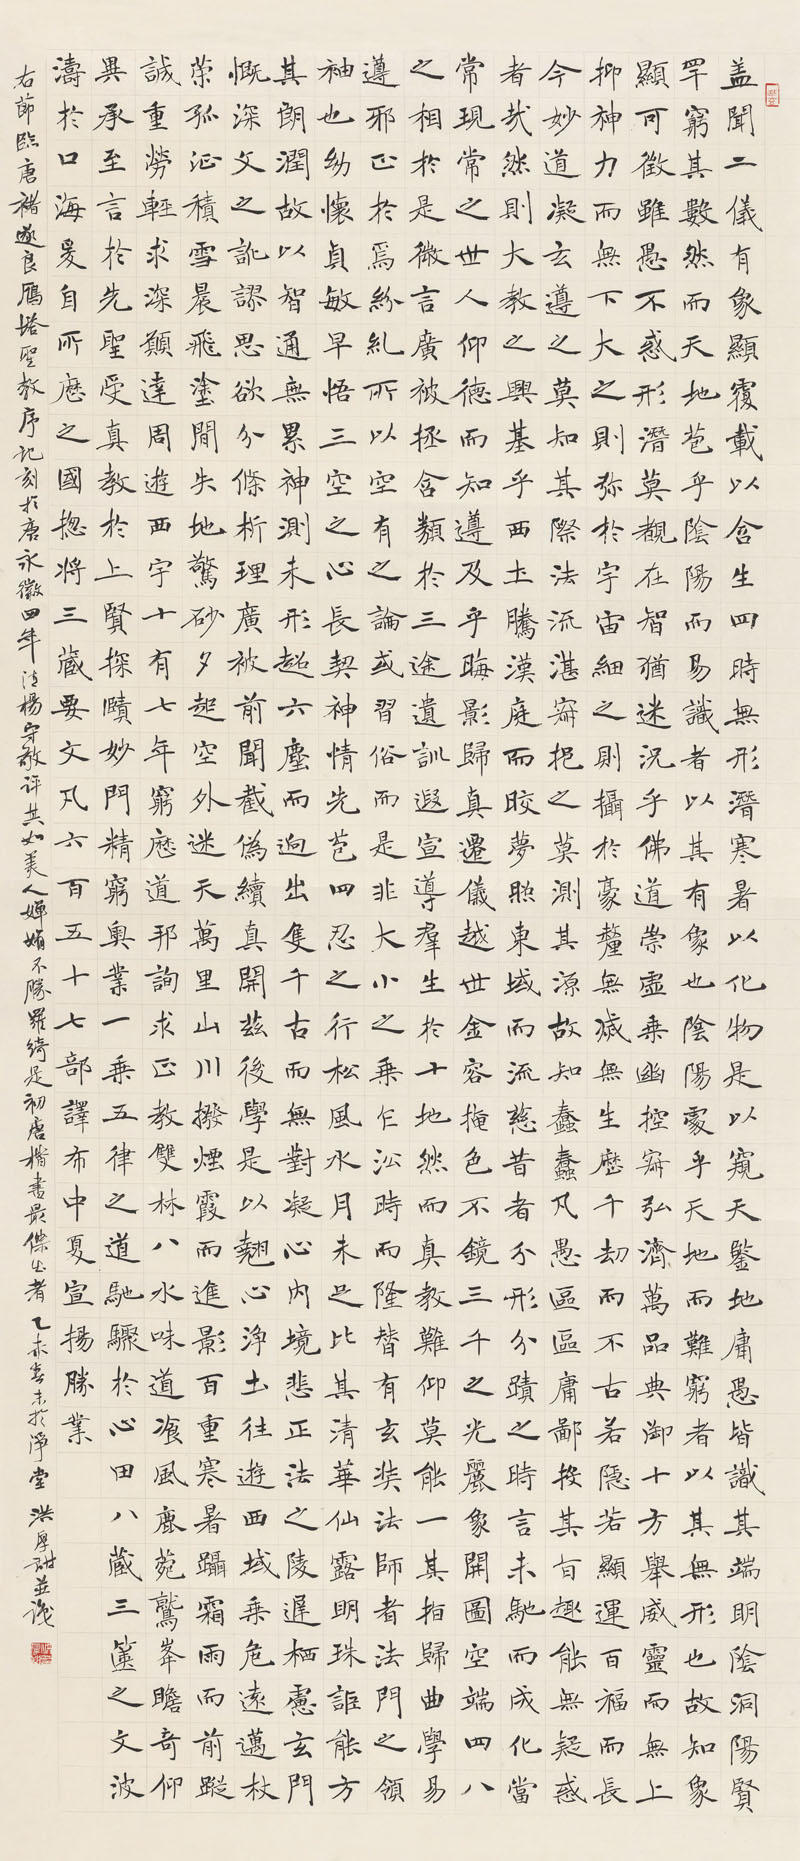 盖聞二儀有象顯覆載以含生四時無形潛寒暑以化物是以窺天鑒地庸愚皆識其端明陰洞陽賢
罕窮其數然而天地苞乎陰陽而易識者以其有象也陰陽處乎天地而難窮者以其無形也故知象
顯可徵雖愚不惑形潛莫覩在智猶迷況乎佛道崇虛乘幽控寂弘濟萬品典御十方舉威靈而無上
抑神力而無下大之則弥於宇宙細之則攝於豪釐無滅無生歷千劫而不古若隱若顯運百福而長
今妙道凝玄遵之莫知其際法流湛寂挹之莫測其源故知蠢蠢凡愚區區庸鄙投其旨趣能無疑惑
者㢤然則大教之興基乎西土騰漢庭而皎夢照東域而流慈昔者分形分蹟之時言未馳而成化當
常現常之世人仰德而知遵及乎晦影歸真遷儀越世金容掩色不鏡三千之光麗象開圖空端四八
之相於是微言廣被拯含類於三途遺訓遐宣導羣生於十地然而真教難仰莫能一其指歸曲學易
遵邪正於焉紛糺所以空有之論或習俗而是非大小之乘乍沿時而隆替有玄奘法師者法門之領
袖也幼懷貞敏早悟三空之心長契神情先苞四忍之行松風水月未足比其清華仙露明珠詎能方
其朗潤故以智通無累神測未形超六塵而迥出隻千古而無對凝心內境悲正法之陵遲栖慮玄門
慨深文之訛謬思欲分條析理廣被前聞截偽續真開茲後學是以翹心淨土往遊西域乘危遠邁杖
策孤征積雪晨飛塗間失地驚砂夕起空外迷天萬里山川撥煙霞而進影百重寒暑躡霜雨而前蹤
誠重勞輕求深願達周遊西宇十有七年窮歷道邦詢求正教雙林八水味道飡風鹿菀鷲峯瞻奇仰
異承至言於先聖受真教於上賢探賾妙門精窮奧業一乘五律之道馳驟於心田八藏三篋之文波
濤於口海爰自所歷之國揔將三藏要文凡六百五十七部譯布中夏宣揚勝業
右節臨唐褚遂良雁塔聖教序記刻於唐永徽四年清楊守敬評其如美人嬋娟不勝羅綺是初唐楷書最傑出者乙未春末於淨堂洪厚甜並識